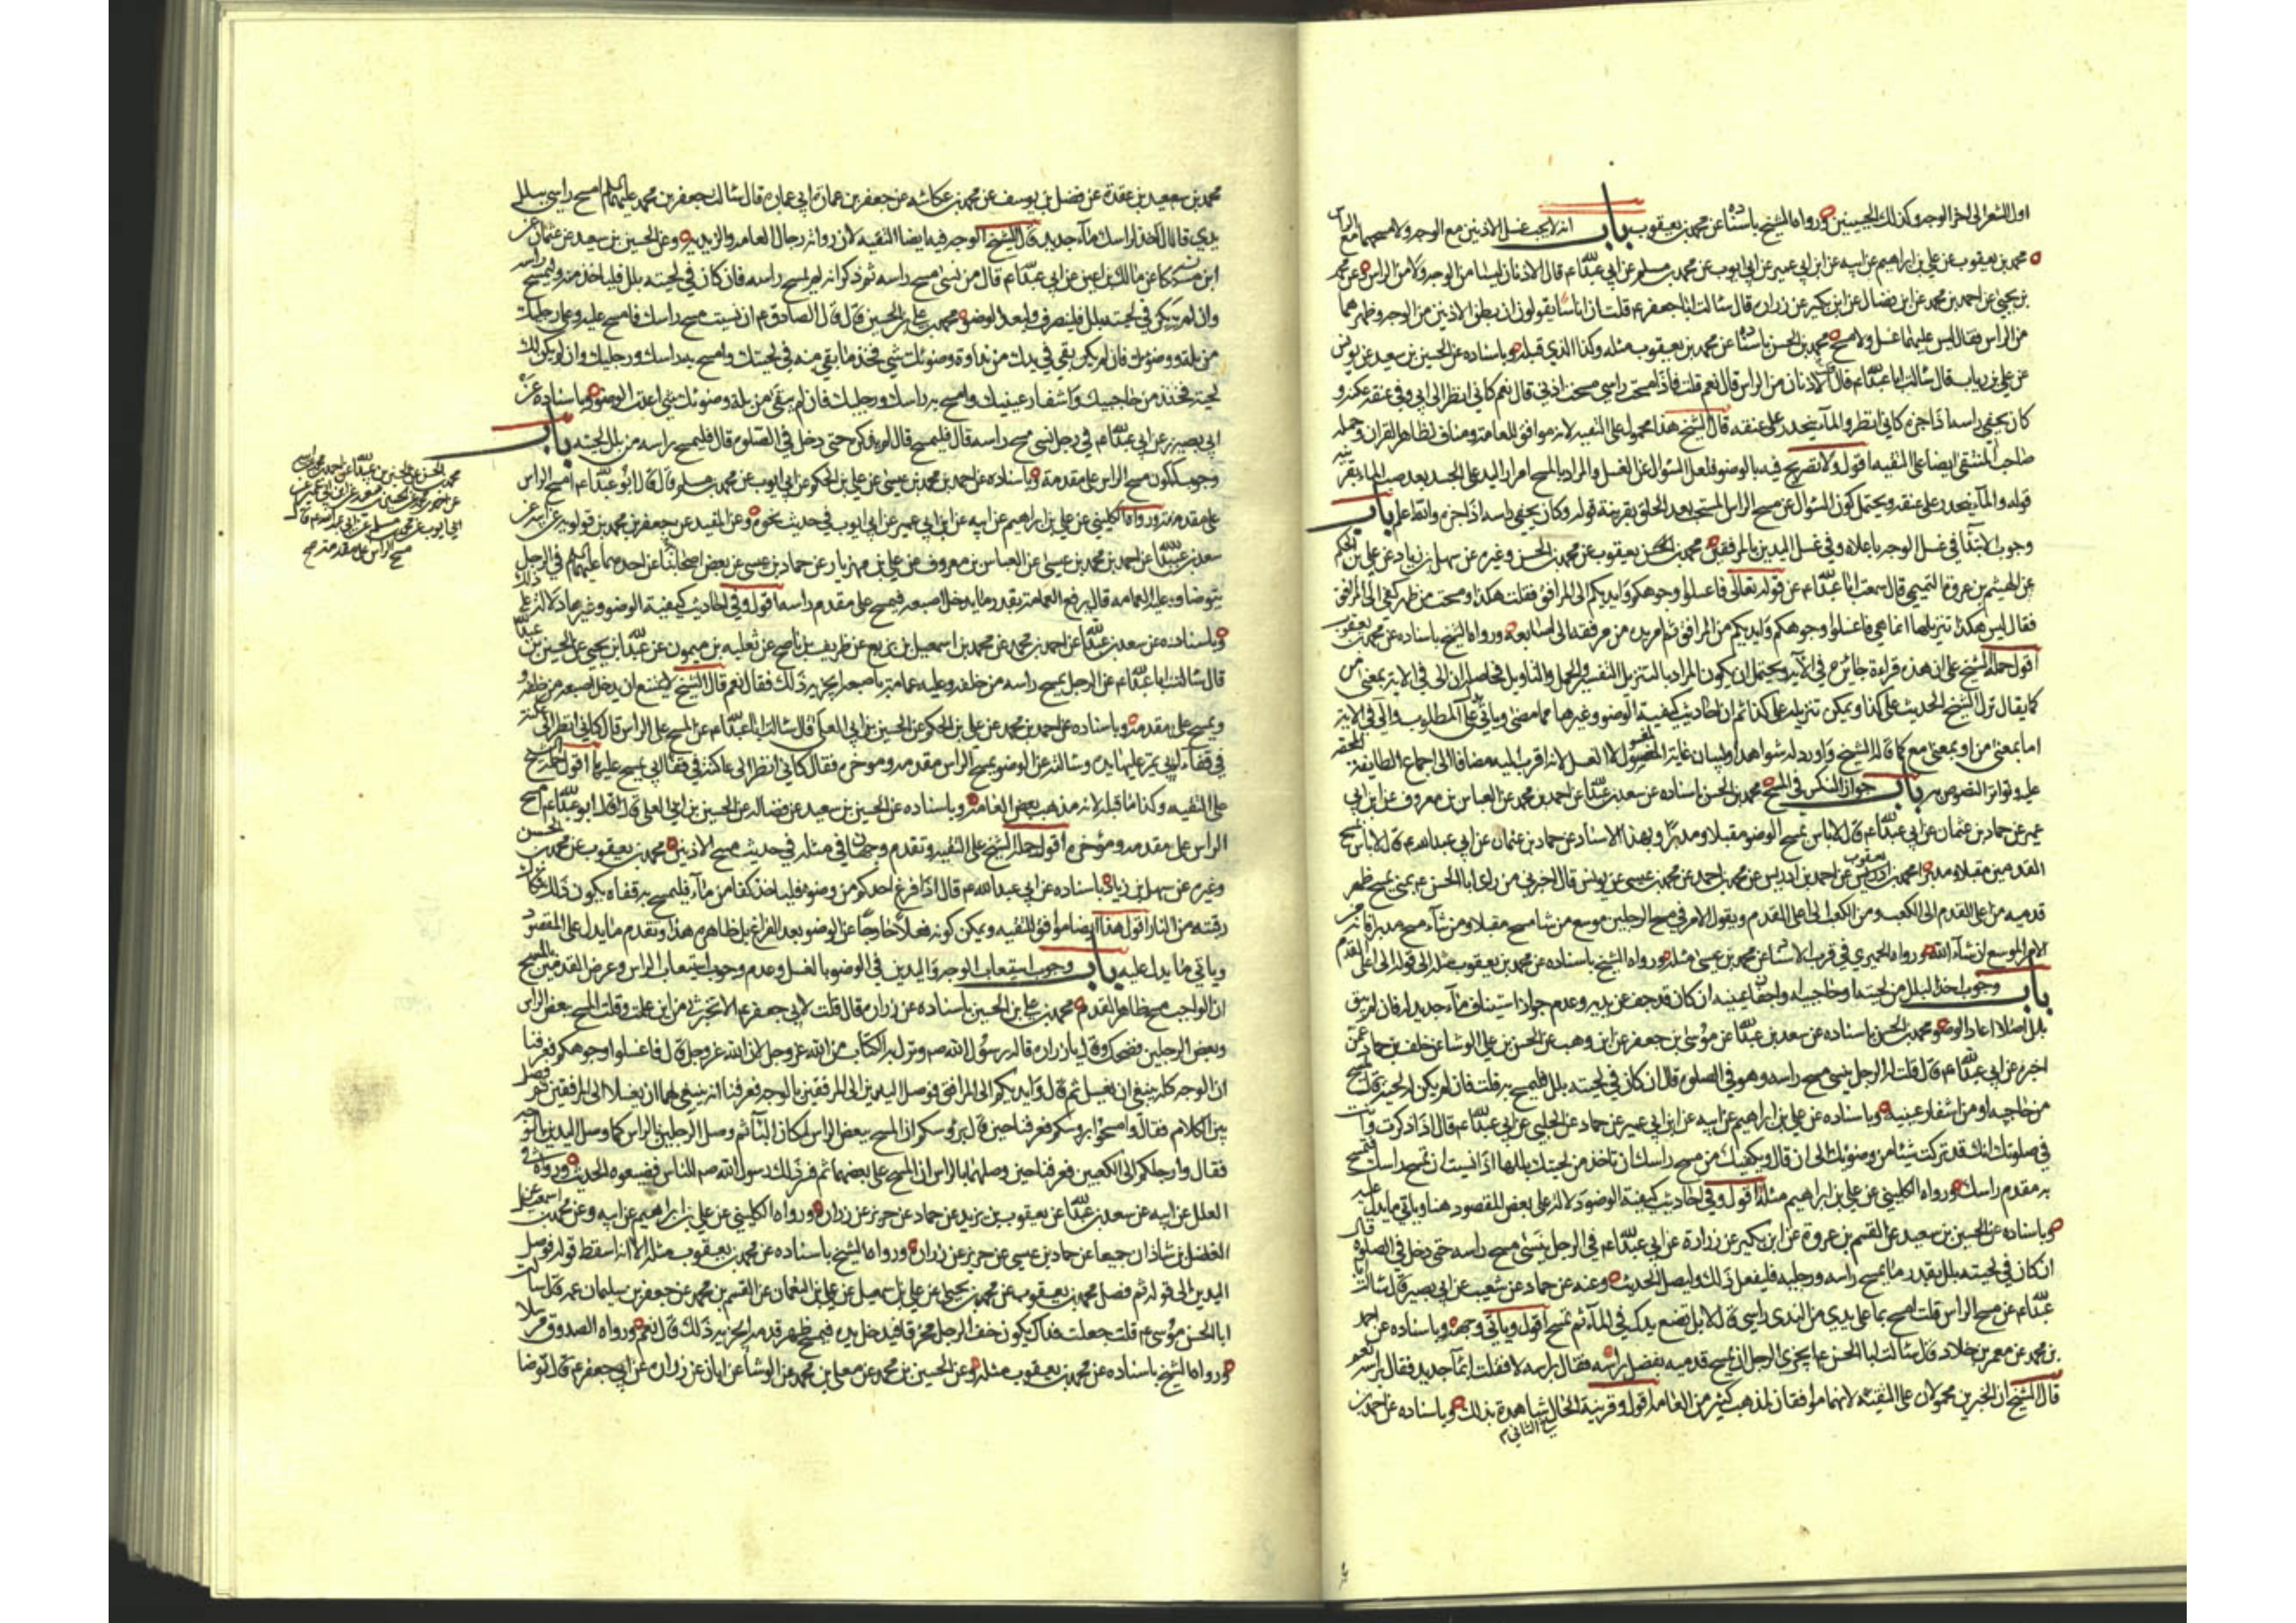 اول الشعر الى اخر الوجه وكذلك الجبينين ورواه الشيخ باسناده عن محمد بن يعقوب باب انه لا يجب غسل الاذنين مع الوجه ولا مسحهما مع الراس
محمد بن يعقوب عن علي بن ابراهيم عن ابيه عن ابن ابي عمير عن ابي ايوب عن محمد بن مسلم عن ابي عبدالله ع قال الاذنان ليسا من الوجه ولا من الراس وعن محمد
بن يحيى عن احمد بن محمد عن ابن فضال عن ابن بكير عن زرارة قال سالت ابا جعفر ع قلت ان اناسا يقولون ان بطن الاذنين من الوجه وظهرهما
من الراس فقال ليس عليهما غسل ولا مسح محمد بن الحسن باسناده عن محمد بن يعقوب مثله وكذا الذي قبله وباسناده عن الحسين بن سعيد عن يونس
عن علي بن رياب قال سالت ابا عبدالله ع قال الاذنان من الراس قال نعم قلت فاذا مسحت راسي مسحت اذني قال نعم كاني انظر الى ابي وفي عنقه عكنة و
كان يحفي راسه اذا جزه كاني انظر والماء ينحدر على عنقه قال الشيخ هذا محمول على التقيه لانه موافق للعامة ومناف لظاهر القران وحمله
صاحب المنتقى ايضا على التقيه اقول ولا تصريح فيه بالوضو فلعل السؤال عن الغسل والمراد بالمسح امرار اليد على الجسد بعد صب الماء بقرينة
قوله والماء ينحدر على عنقه ويحتمل كون السؤال عن مسح الراس المستحب بعد الحلق بقرينة قوله وكان يحفي راسه اذا جزه والله اعلم باب
وجوب الابتدا في غسل الوجه باعلاه وفي غسل اليدين بالمرفقين محمد بن الحسن يعقوب عن محمد بن الحسن وغيره عن سهل بن زياد عن علي بن الحكم
عن الهيثم بن عروة التميمي قال سمعت ابا عبدالله ع عن قوله تعالى فاغسلوا وجوهكم وايديكم الى المرافق فقلت هكذا ومسحت من ظهر كفي الى المرفق
فقال ليس هكذا تنزيلها انما هي فاغسلوا وجوهكم وايديكم من المرافق ثم امر يده من مرفقه الى اصابعه ورواه الشيخ باسناده عن محمد بن يعقوب
اقول حمله الشيخ على ان هذه قراءة جائزة في الاية ويحتمل ان يكون المراد بالتنزيل التفسير والحمل والتاويل فحاصله ان الى في الاية بمعنى من
كما يقال نزل الشيخ الحديث على كذا ويمكن تنزيله على كذا ثم ان احاديث كيفية الوضو وغيرها مما مضى وياتي على المطلوب والى في الاية
اما بمعنى من او بمعنى مع كما قاله الشيخ واورد له شواهد او لبيان غاية المغسول لا الغسل لانه اقرب ليه مضافا الى اجماع الطايفة المحقة
عليه وتواتر النصوص به باب جواز النكس في المسح محمد بن الحسن باسناده عن سعد بن عبدالله عن احمد بن محمد عن العباس بن معروف عن ابن ابي
عمير عن حماد بن عثمان عن ابي عبدالله ع قال لا باس بمسح الوضو مقبلا ومدبرا وبهذا الاسناد عن حماد بن عثمان عن ابي عبدالله ع قال لا باس بمسح
القدمين مقبلا ومدبرا محمد بن يعقوب عن احمد بن ادريس عن محمد بن احمد عن محمد بن عيسى عن يونس قال اخبرني من راى ابا الحسن ع بمنى يمسح ظهر
قدميه من اعلى القدم الى الكعب ومن الكعب الى اعلى القدم ويقول الامر في مسح الرجلين موسع من شا مسح مقبلا ومن شاء مسح مدبرا فانه من
الامر الموسع ان شاء الله ورواه الحميري في قرب الاسناد عن محمد بن عيسى مثله ورواه الشيخ باسناده عن محمد بن يعقوب مثله الى قوله الى اعلى القدم
باب وجوب اخذ البلل من لحيته او حاجبيه واجفان عينيه ان كان قد جف عن يديه وعدم جواز استيناف ماء جديد له فان لم يبق
بلل اصلا اعاد الوضو محمد بن الحسن باسناده عن سعد بن عبدالله عن موسى بن جعفر عن ابن وهب عن الحسن بن علي الوشا عن خلف بن حماد عمن
اخبره عن ابي عبدالله ع قال قلت له الرجل ينسى مسح راسه وهو في الصلوة قال ان كان في لحيته بلل فليمسح به قلت فان لم يكن له لحية قال يمسح
من حاجبيه او من اشفار عينيه وباسناده عن علي بن ابراهيم عن ابيه عن ابن ابي عمير عن حماد عن الحلبي عن ابي عبدالله ع قال اذا ذكرت وانت
في صلوتك انك قد تركت شيئا من وضوئك الى ان قال ويكفيك من مسح راسك ان تاخذ من لحيتك بللها اذا نسيت ان تمسح راسك فتمسح
به مقدم راسك ورواه الكليني عن علي بن ابراهيم مثله اقول وفي احاديث كيفية الوضو دلالة على بعض المقصود هنا وياتي ما يدل عليه
وباسناده عن الحسين بن سعيد عن القسم بن عروة عن ابن بكير عن زرارة عن ابي عبدالله ع في الرجل ينسى مسح راسه حتى دخل في الصلوة قال
ان كان في لحيته بلل بقدر ما يمسح راسه ورجليه فليفعل ذلك وليصل الحديث وعنه عن حماد عن شعيب عن ابي بصير قال سالت ابا
عبدالله ع عن مسح الراس قلت امسح بما على يدي من الندى راسي قال لا بل تضع يدك في الماء ثم تمسح اقول وياتي وجهه وباسناده عن احمد
بن محمد عن معمر بن خلاد قال سالت ابا الحسن ع ايجزي الرجل ان يمسح قدميه بفضل راسه فقال براسه لا فقلت ابماء جديد فقال براسه نعم
قال الشيخ ان الخبرين محمولان على التقيه لانهما موافقان لمذهب كثير من العامة اقول وقرينة الحال شاهدة بذلك وباسناده عن احمد بن
محمد بن سعيد بن عقدة عن فضل بن يوسف عن محمد بن عكاشه عن جعفر بن عمارة ابي عمارة قال سالت جعفر بن محمد عليهما السلم امسح راسي ببلل
يدي قال لا خذ لراسك ماء جديد قال الشيخ الوجه فيه ايضا التقيه لان رواته رجال العامه والزيديه وعن الحسين بن سعيد عن عثمان عن
ابن مسكان عن مالك بن اعين عن ابي عبدالله ع قال من نسي مسح راسه ثم ذكر انه لم يمسح راسه فان كان في لحيته بلل فلياخذ منه وليمسح راسه
وان لم يكن في لحيته بلل فلينصرف وليعد الوضو محمد بن علي بن الحسين قال قال الصادق ع ان نسيت مسح راسك فامسح عليه وعلى رجليك
من بلة وضوئك فان لم يكن بقي في يدك من نداوة وضوئك شي فخذ ما بقي منه في لحيتك وامسح به راسك ورجليك وان لم يكن لك
لحية فخذ من حاجبيك واشفار عينيك وامسح به راسك ورجليك فان لم يبق من بلة وضوئك شي اعدت الوضو وباسناده عن
ابي بصير عن ابي عبدالله ع في رجل نسي مسح راسه قال فليمسح قال لم يذكره حتى دخل في الصلوة قال فليمسح راسه من بلل لحيته باب
وجوب كون مسح الراس على مقدمة وباسناده عن احمد بن محمد بن عيسى عن علي بن الحكم عن ابي ايوب عن محمد بن مسلم قال قال ابو عبدالله ع امسح الراس
على مقدمه ورواه الكليني عن علي بن ابراهيم عن ابيه عن ابن ابي عمير عن ابي ايوب في حديث نحوه وعن المفيد عن جعفر بن محمد بن قولويه عن ابيه عن
سعد بن عبدالله عن احمد بن محمد بن عيسى عن العباس بن معروف عن علي بن مهزيار عن حماد بن عيسى عن بعض اصحابنا عن احدهما عليهما السلم في الرجل
يتوضا وعليه العمامه قال يرفع العمامة بقدر ما يدخل اصبعه فيمسح على مقدم راسه اقول وفي احاديث كيفية الوضو وغيرها دلالة على ذلك
وباسناده عن سعد بن عبدالله عن احمد بن محمد عن محمد بن اسمعيل بن بزيع عن ظريف بن ناصح عن ثعلبه بن ميمون عن عبدالله بن يحيى عن الحسين بن عبدالله
قال سالت ابا عبدالله ع عن الرجل يمسح راسه من خلفه وعليه عمامة باصبعه ايجزيه ذلك فقال نعم قال الشيخ لا يمتنع ان يدخل اصبعه من خلفه و
ويمسح على مقدمه وباسناده عن احمد بن محمد عن علي بن الحكم عن الحسين بن ابي العلا قال سالت ابا عبدالله ع عن المسح على الراس قال كاني انظر الى عكنة
في قفاء ابي يمر عليها يده وسالته عن الوضو بمسح الراس مقدمه وموخره فقال كاني انظر الى عكنة في قفا ابي يمسح عليها اقول حمله الشيخ
على التقيه وكذا ما قبله لانه مذهب بعض العامة وباسناده عن الحسين بن سعيد عن فضاله عن الحسين بن ابي العلا قال قال ابو عبدالله ع امسح
الراس على مقدمه ومؤخره اقول حمله الشيخ على التقيه وتقدم وجهان في مثله في حديث مسح الاذنين محمد بن يعقوب عن محمد بن الحسن
وغيره عن سهل بن زياد باسناده عن ابي عبدالله ع قال اذا فرغ احدكم من وضوئه فلياخذ كفا من ماء فليمسح به قفاه يكون ذلك فكاك
رقبته من النار اقول هذا ايضا موافق للتقيه ويمكن كونه فعلا خارجا عن الوضو بعد الفراغ بل ظاهره هذا وتقدم ما يدل على المقصود
وياتي ما يدل عليه باب وجوب استيعاب الوجه واليدين في الوضو بالغسل وعدم وجوب استيعاب الراس وعرض القدمين بالمسح
ان الواجب مسح ظاهر القدم محمد بن علي بن الحسين باسناده عن زرارة قال قلت لابي جعفر ع الا تخبرني من اين علمت وقلت ان المسح ببعض الراس
وبعض الرجلين فضحك وقال يا زرارة قاله رسول الله صم ونزل به الكتاب من الله عز وجل لان الله عز وجل قال فاغسلوا وجوهكم فعرفنا
ان الوجه كله ينبغي ان يغسل ثم قال وايديكم الى المرافق فوصل اليدين الى المرفقين بالوجه فعرفنا انه ينبغي لهما ان يغسلا الى المرفقين ثم فصل
بين الكلام فقال وامسحوا بروسكم فعرفنا حين قال برؤسكم ان المسح ببعض الراس لمكان الباء ثم وصل الرجلين بالراس كما وصل اليدين بالوجه
فقال وارجلكم الى الكعبين فعرفنا حين وصلهما بالراس ان المسح على بعضهما ثم فسر ذلك رسول الله صم للناس فضيعوه الحديث ورواه في
العلل عن ابيه عن سعد بن عبدالله عن يعقوب بن يزيد عن حماد عن حريز عن زرارة ورواه الكليني عن علي بن ابراهيم عن ابيه وعن محمد بن اسمعيل عن
الفضل بن شاذان جميعا عن حماد بن عيسى عن حريز عن زرارة ورواه الشيخ باسناده عن محمد بن يعقوب مثله الا انه اسقط قوله فوصل
اليدين الى قوله ثم فصل محمد بن يعقوب عن محمد بن يحيى عن علي بن اسمعيل عن علي بن النعمان عن القسم بن محمد عن جعفر بن سليمان عمه قال سالت
ابا الحسن موسى ع قلت جعلت فداك يكون خف الرجل مخرقا فيدخل يده فيمسح ظهر قدمه ايجزيه ذلك قال نعم ورواه الصدوق مرسلا
ورواه الشيخ باسناده عن محمد بن يعقوب مثله وعن الحسين بن محمد عن معلى بن محمد عن الوشا عن ابان عن زرارة عن ابي جعفر ع قال توضا